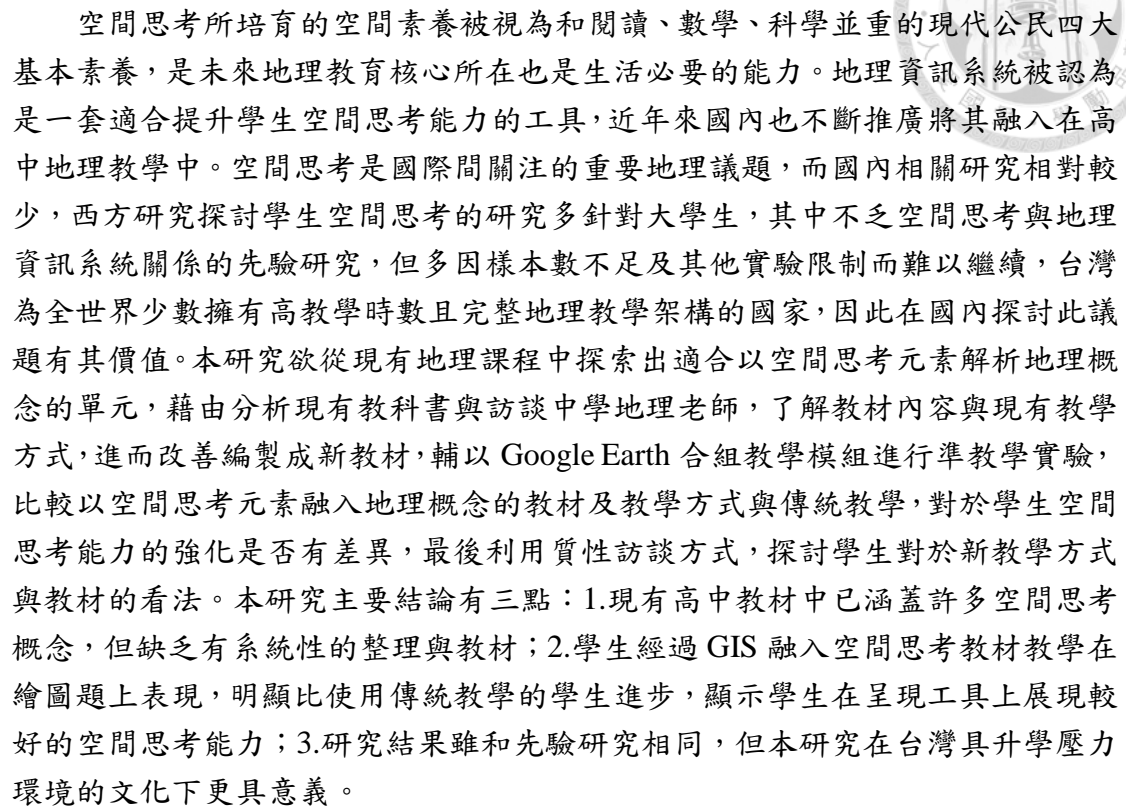 空間思考所培育的空間素養被視為和閱讀、數學、科學並重的現代公民四大
基本素養，是未來地理教育核心所在也是生活必要的能力。地理資訊系統被認為
是一套適合提升學生空間思考能力的工具，近年來國內也不斷推廣將其融入在高
中地理教學中。空間思考是國際間關注的重要地理議題，而國內相關研究相對較
少，西方研究探討學生空間思考的研究多針對大學生，其中不乏空間思考與地理
資訊系統關係的先驗研究，但多因樣本數不足及其他實驗限制而難以繼續，台灣
為全世界少數擁有高教學時數且完整地理教學架構的國家，因此在國內探討此議
題有其價值。本研究欲從現有地理課程中探索出適合以空間思考元素解析地理概
念的單元，藉由分析現有教科書與訪談中學地理老師，了解教材內容與現有教學
方式，進而改善編製成新教材，輔以 Google Earth 合組教學模組進行準教學實驗，
比較以空間思考元素融入地理概念的教材及教學方式與傳統教學，對於學生空間
思考能力的強化是否有差異，最後利用質性訪談方式，探討學生對於新教學方式
與教材的看法。本研究主要結論有三點：1.現有高中教材中已涵蓋許多空間思考
概念，但缺乏有系統性的整理與教材；2.學生經過 GIS 融入空間思考教材教學在
繪圖題上表現，明顯比使用傳統教學的學生進步，顯示學生在呈現工具上展現較
好的空間思考能力；3.研究結果雖和先驗研究相同，但本研究在台灣具升學壓力
環境的文化下更具意義。